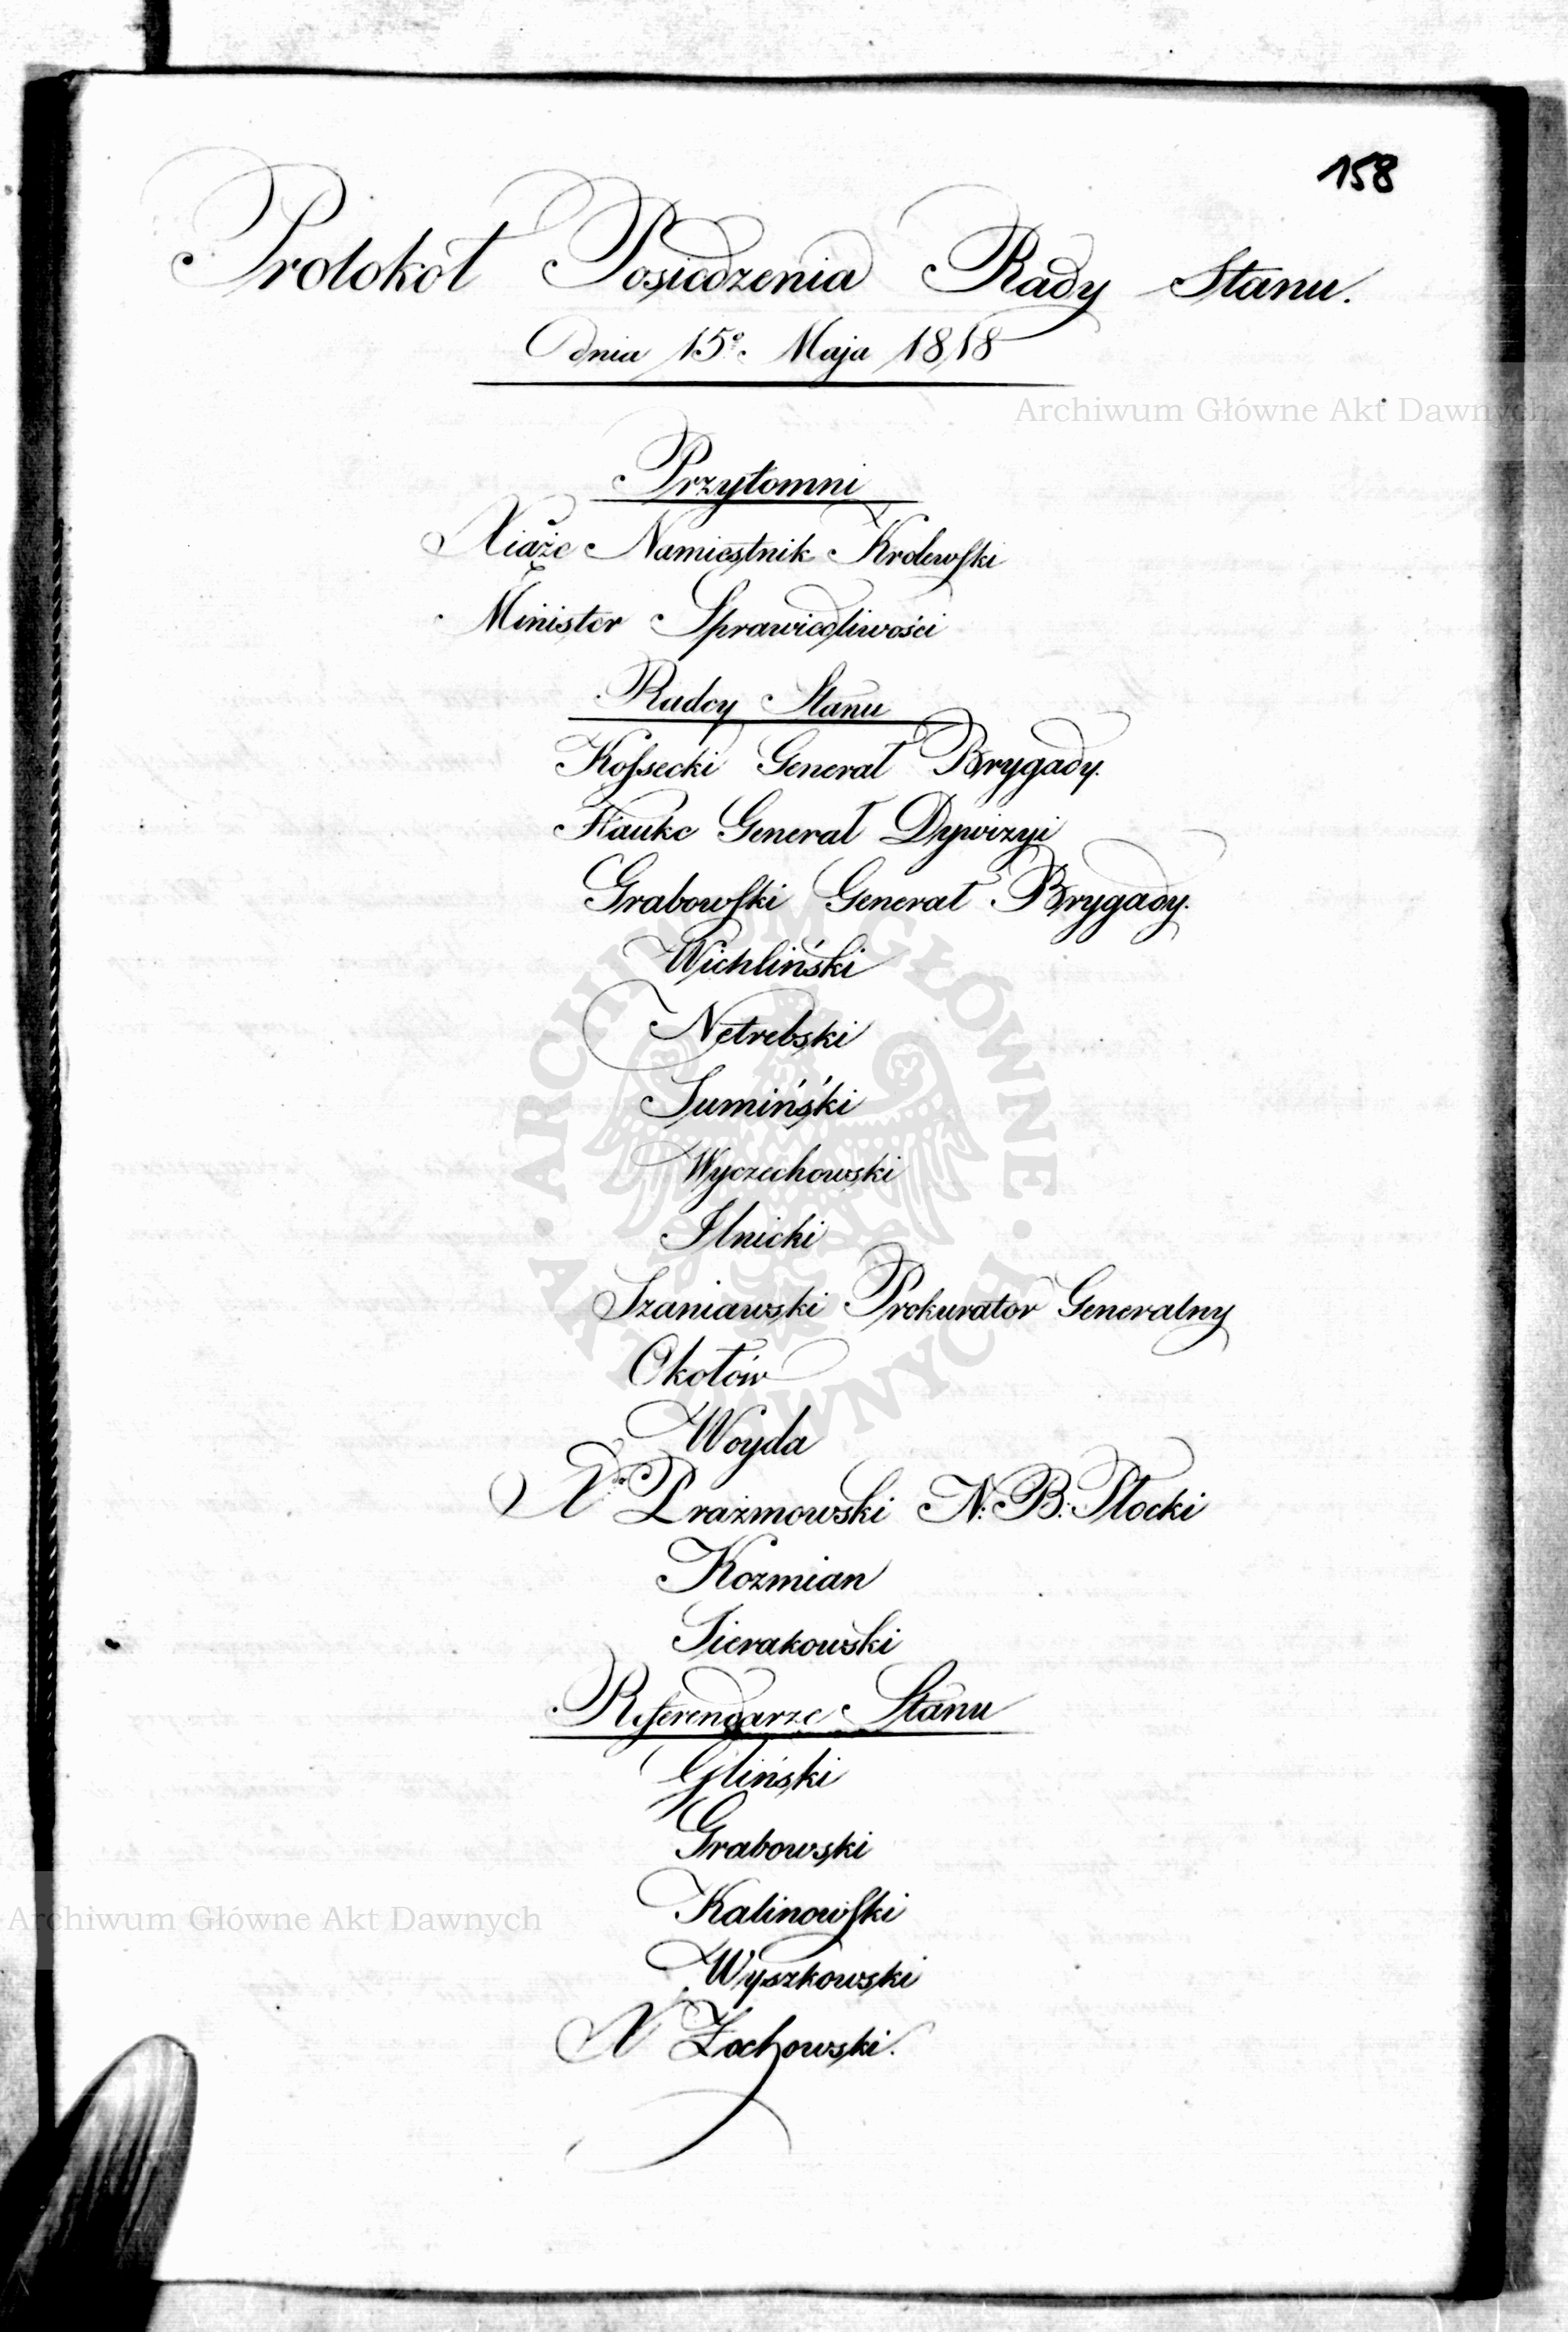 158
Protokół Posiedzenia Rady Stanu.
dnia 15º. Maja 1818
Archiwum Główne Akt Dawnych
Przytomni
Xiąże Namiestnik Krolewski
Minister Sprawiedliwości
Radcy Stanu
Kossecki Generał Brygady.
Hauke Generał Dywizyi
Grabowski Generał Brygady.
Wichliński
Netrebski
Sumiński
Wyczechowski
Ilnicki
Szaniawski Prokurator Generalny
Okołów
Woyda
X. Prażmowski N. B. Płocki
Kozmian
Sierakowski
Referendarze Stanu
Gliński
Grabowski
Kalinowski
Archiwum Główne Akt Dawnych
Wyszkowski
X Żochowski.
ARCHIWUM GŁÓWNE AKT DAWNYCH